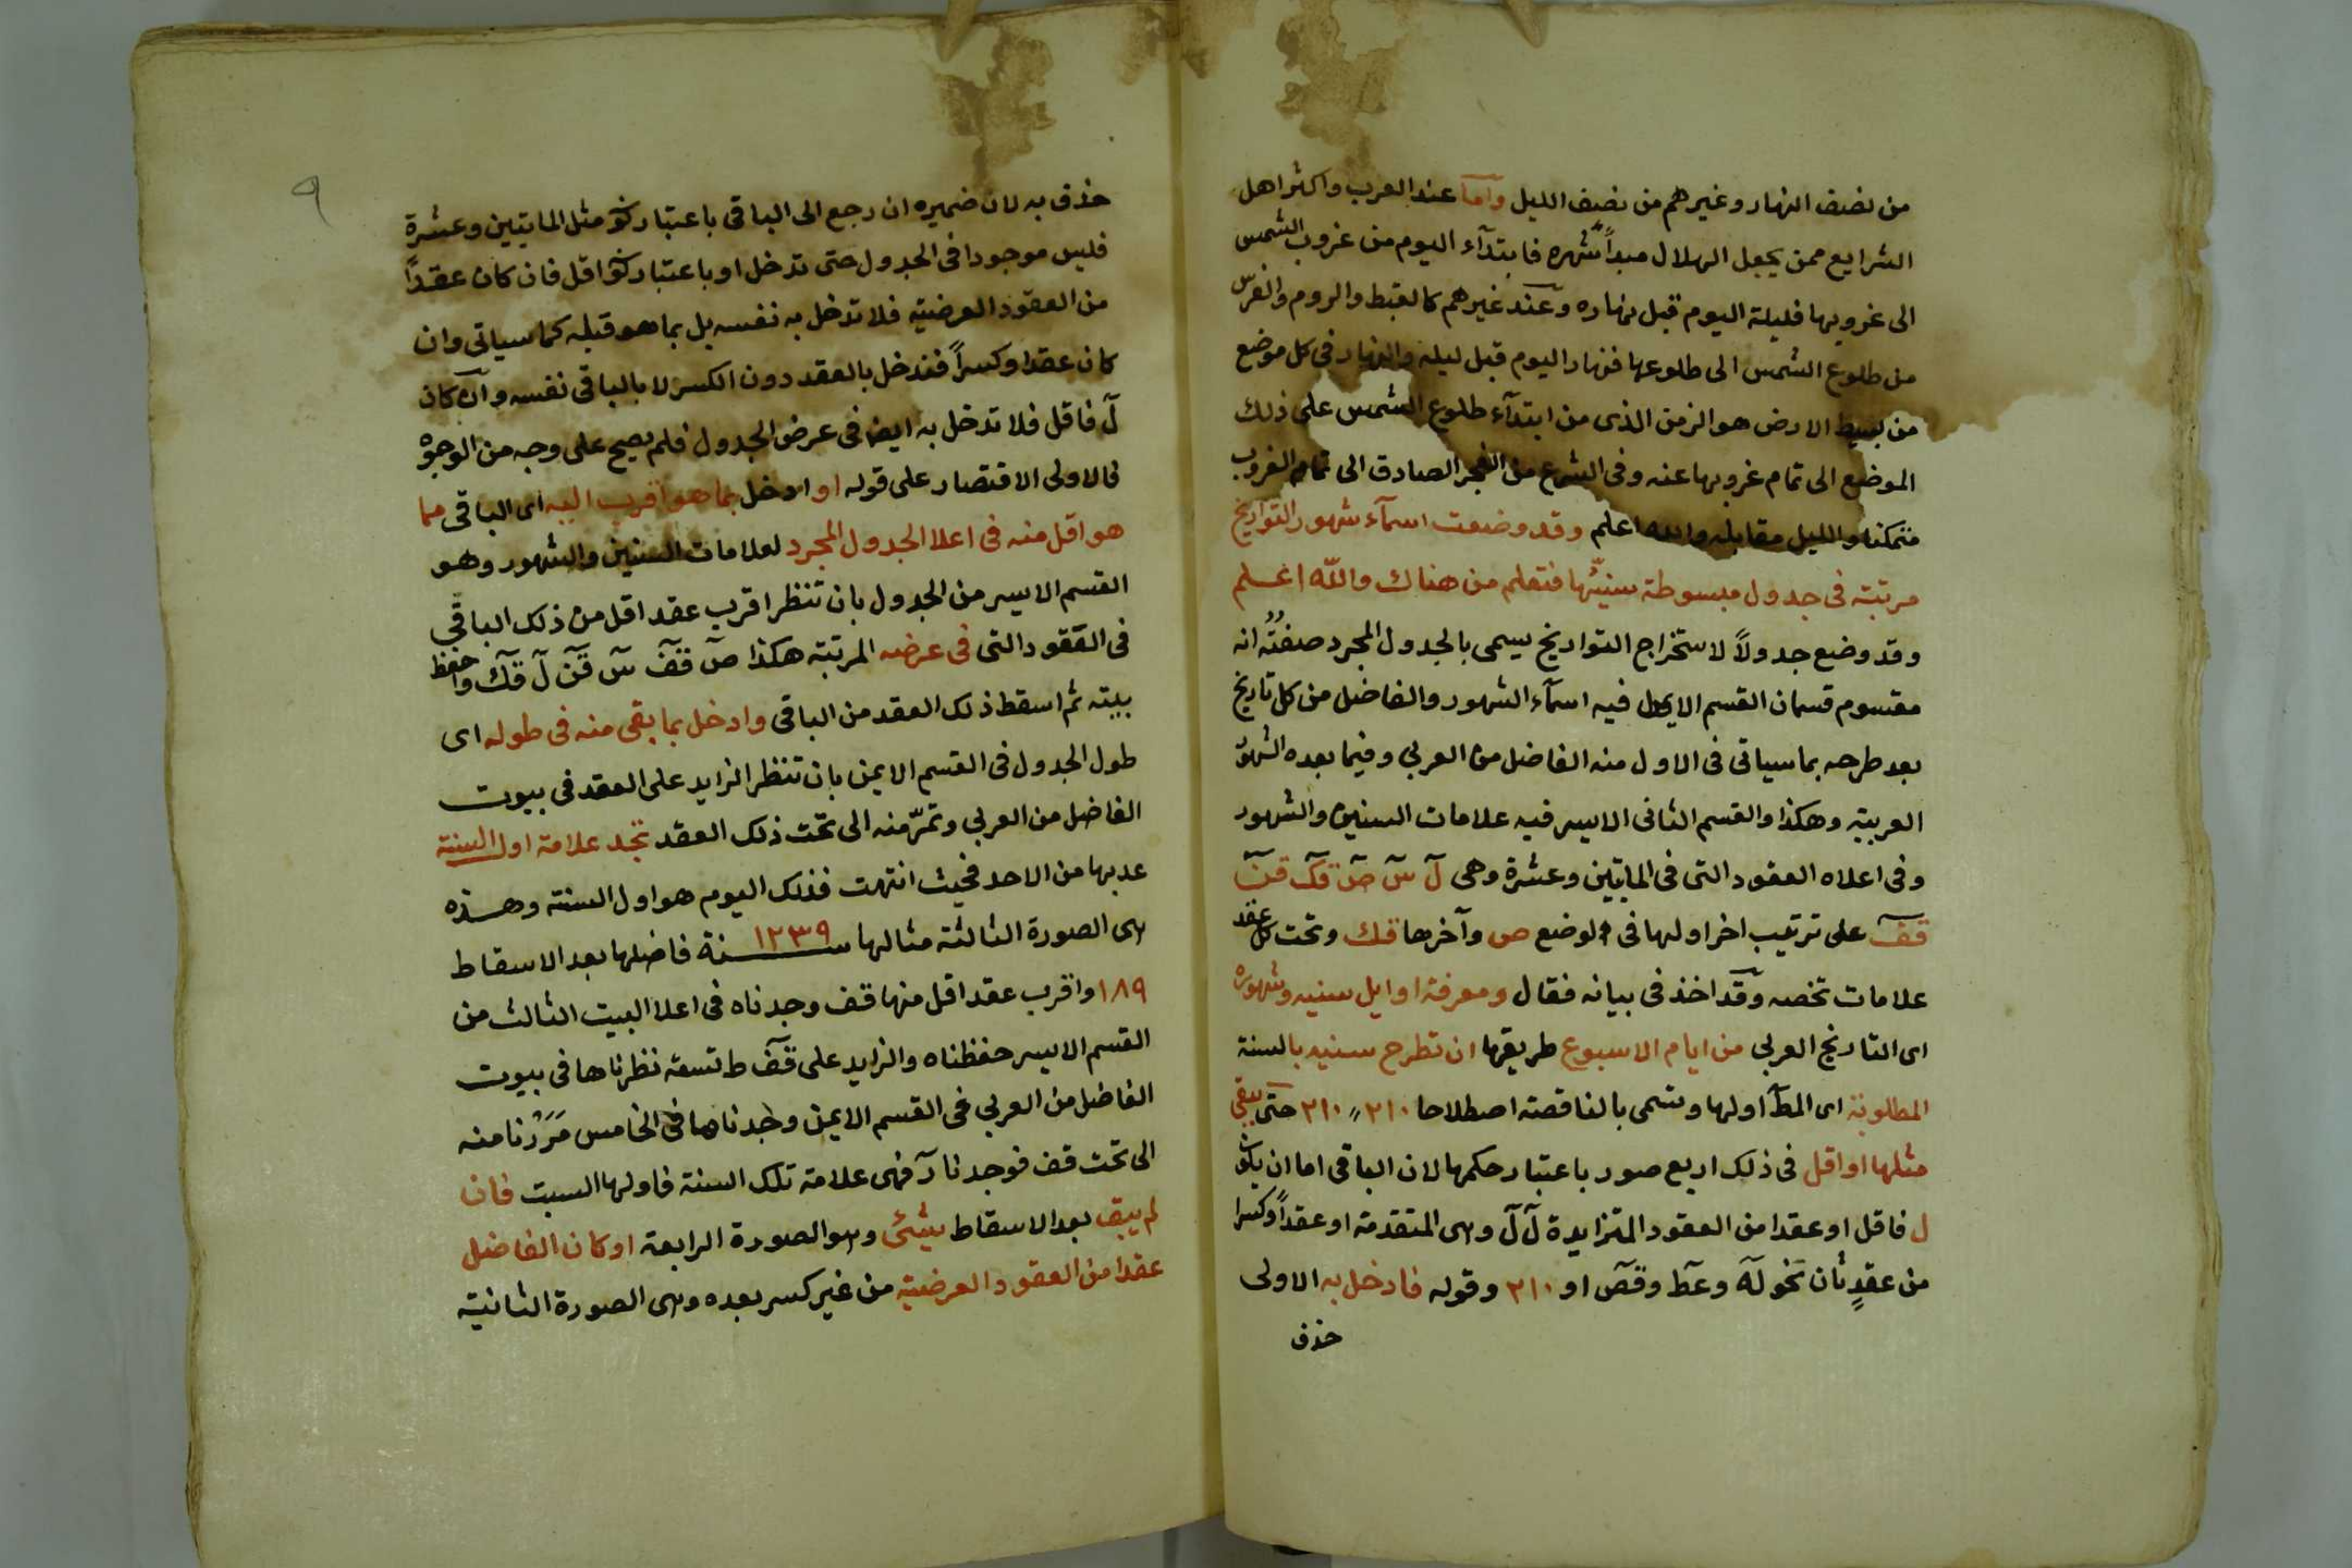 من نصف النهار وغيرهم من نصف الليل واما عند العرب واكثر اهل
الشرايع ممن يجعل الهلال مبدأ شهره فابتدآء اليوم من غروب الشمس
الى غروبها فليلة اليوم قبل نهاره وعند غيرهم كالقبط والروم والفرس
من طلوع الشمس الى طلوعها فنهار اليوم قبل ليله والنهار فى كل موضع
من بسيط الارض هو الزمن الذى من ابتدآء طلوع الشمس على ذلك
الموضع الى تمام غروبها عنه وفى الشرع من الفجر الصادق الى تمام الغروب
والليل مقابله والله اعلم وقد وضعت اسمآء شهور التواريخ
مرتبة فى جدول مبسوطة سنيّها فتعلم من هناك والله اعلم
وقد وضع جدولاً لاستخراج التواريخ يسمى بالجدول المجرد صفتُه انه
مقسوم قسمان القسم الايمن فيه اسمآء الشهور والفاضل من كل تاريخ
بعد طرحه بما سياتى فى الاول منه الفاضل من العربي وفيما بعده الشهور
العربية وهكذا والقسم الثانى الايسر فيه علامات السنين والشهور
وفى اعلاه العقود التى فى المايتين وعشرة وهى لَ سَ صَ قك قن
قف على ترتيب اخر اولها فى الوضع ص وآخرها قك وتحت كل عقد
علامات تخصه وقد اخذ فى بيانه فقال ومعرفة اوايل سنيه وشهوره
اى التاريخ العربي من ايام الاسبوع طريقها ان تطرح سنيه بالسنة
المطلوبة اى المط اولها وتسمى بالناقصة اصطلاحا ٢١٠ ،، ٢١٠ حتى يبقى
مثلها او اقل فى ذلك اربع صور باعتبار حكمها لان الباقى اما ان يكون
ل فاقل او عقدا من العقود المتزايدة لَ لَ وهى المتقدمة او عقداً وكسرا
من عقدٍ ثان نحو له وعط وقص او ٢١٠ وقوله فادخل به الاولى
حذف
٩
حذف به لان ضميره ان رجع الى الباقى باعتبار كونه مثل المايتين وعشرة
فليس موجودا فى الجدول حتى تدخل او باعتبار كونه اقل فان كان عقداً
من العقود العرضية فلا تدخل به نفسه بل بما هو قبله كما سياتى وان
كان عقدا وكسراً فتدخل بالعقد دون الكسر لا بالباقى نفسه وان كان
لَ فاقل فلا تدخل به ايضا فى عرض الجدول فلم يصح على وجه من الوجوه
فالاولى الاقتصار على قوله او ادخل بما هو اقرب اليه اى الباقى مما
هو اقل منه فى اعلا الجدول المجرد لعلامات السنين والشهور وهو
القسم الايسر من الجدول بان تنظر اقرب عقد اقل من ذلك الباقى
فى العقود التى فى عرضه المرتبة هكذا صَ قفَ سَ قنَ لَ قكَ واحفظ
بيته ثم اسقط ذلك العقد من الباقى وادخل بما بقى منه فى طوله اى
طول الجدول فى القسم الايمن بان تنظر الزايد على العقد فى بيوت
الفاضل من العربي وتمرّ منه الى تحت ذلك العقد تجد علامة اول السنة
عد بها من الاحد فحيث انتهت فذلك اليوم هو اول السنة وهذه
هى الصورة الثالثة مثالها سنة ١٢٣٩ فاضلها بعد الاسقاط
١٨٩ واقرب عقد اقل منها قف وجدناه فى اعلا البيت الثالث من
القسم الايسر حفظناه والزايد على قف ط تسعة نظرناها فى بيوت
الفاضل من العربي فى القسم الايمن وجدناها فى الخامس مَرَرْنا منه
الى تحت قف فوجدنا ز فهى علامة تلك السنة فاولها السبت فان
لم يبق بعد الاسقاط شيئ وهو الصورة الرابعة او كان الفاضل
عقدا من العقود العرضية من غير كسر بعده وهى الصورة الثانية